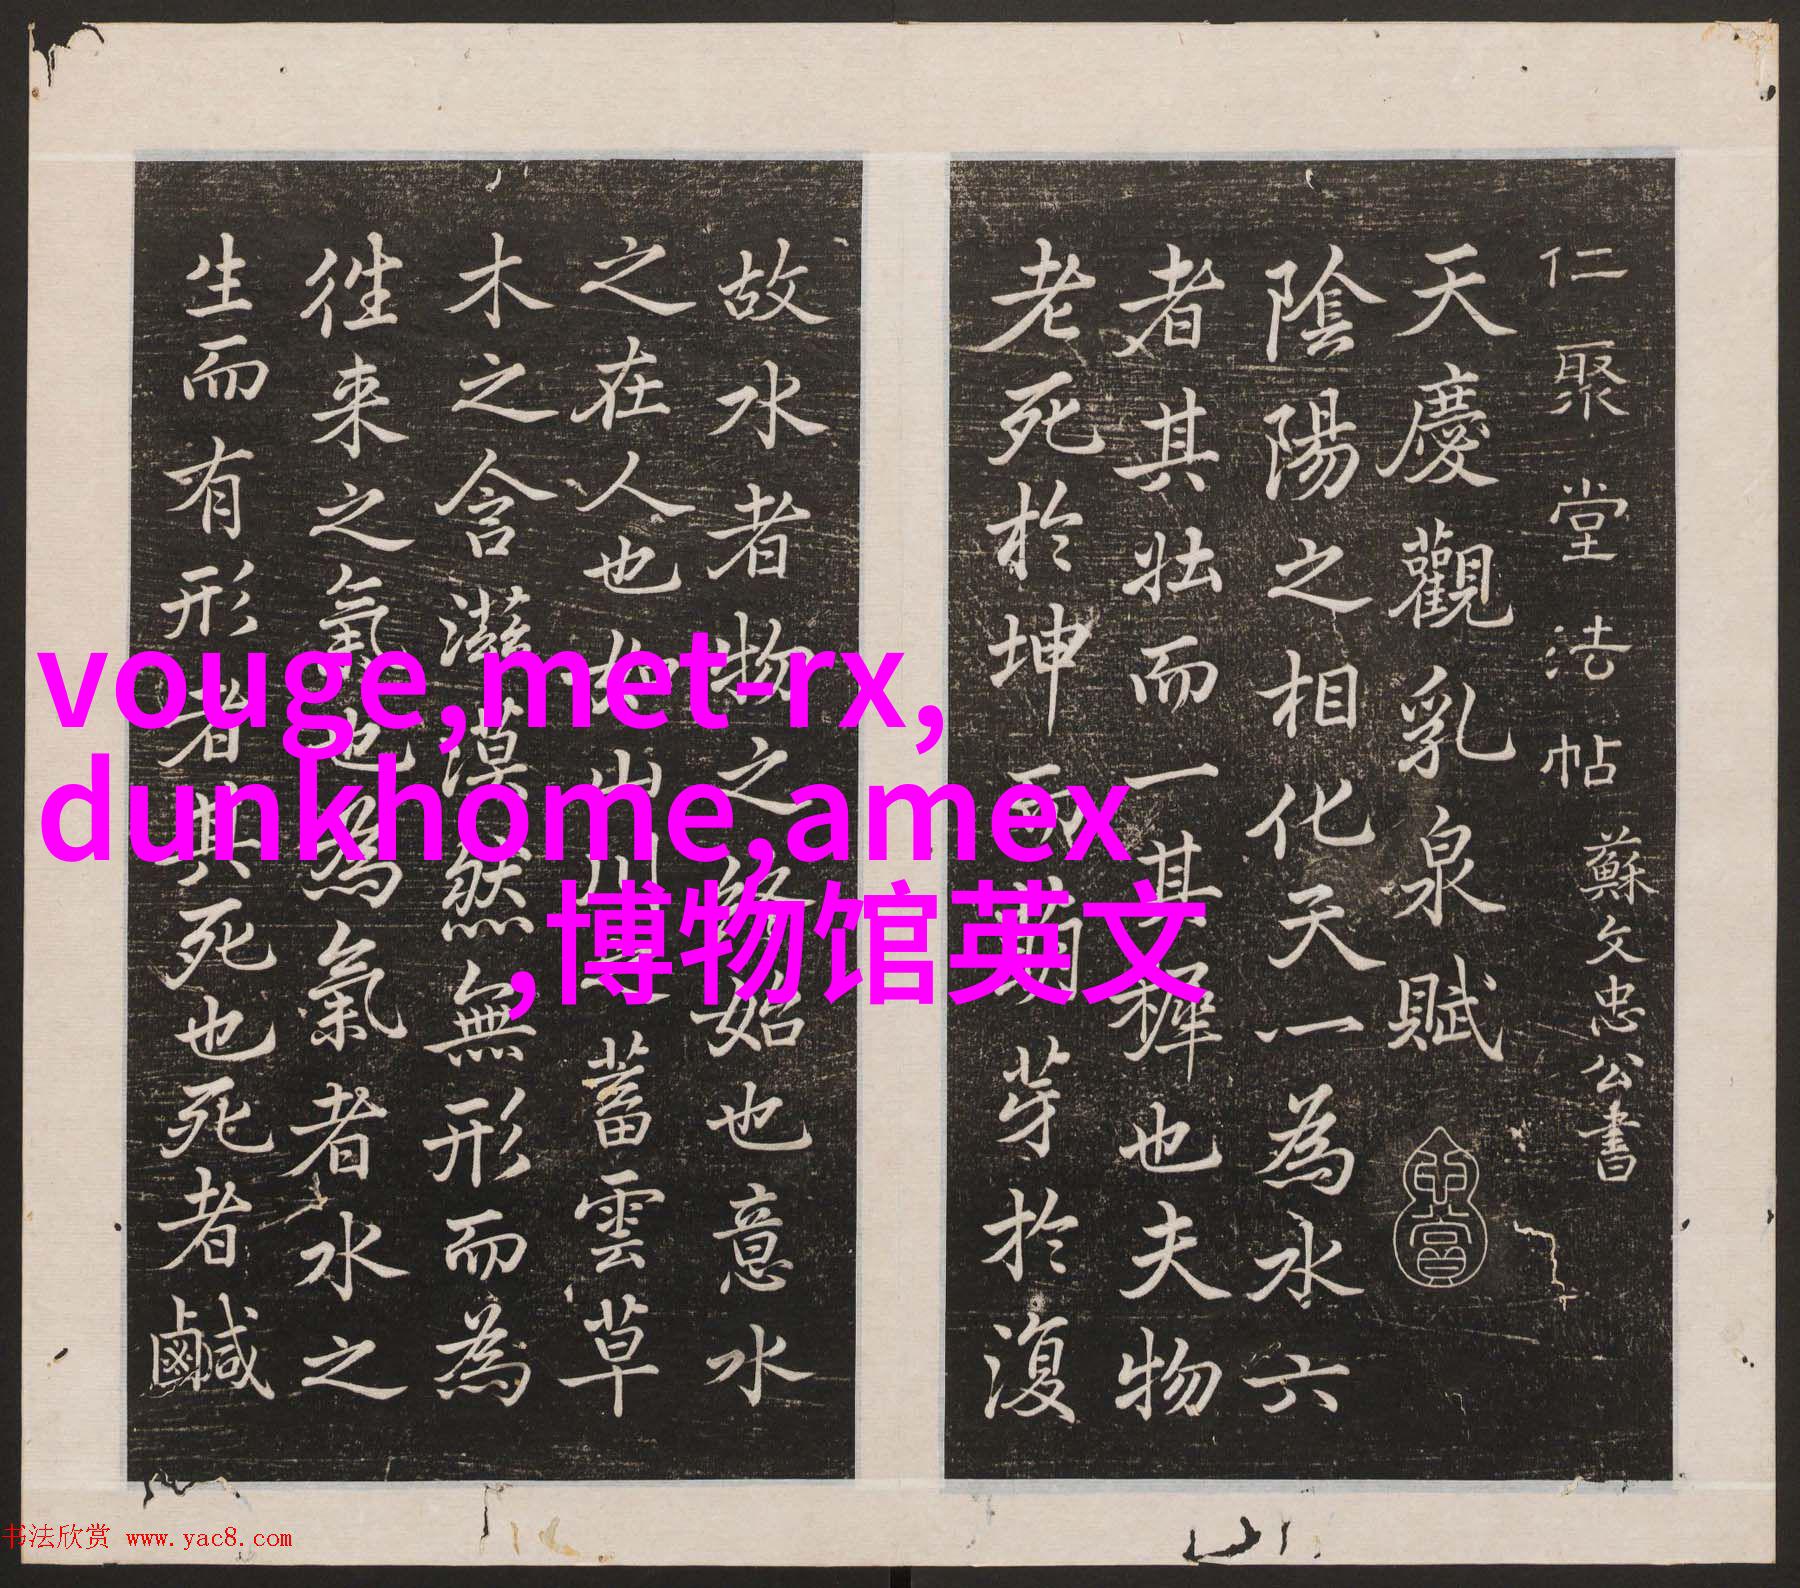 仁聚堂法帖 蘇文忠公書
天慶觀乳泉賦
陰陽之相化天一為水六
者其壯而一其穉也夫物
老死於坤而萌芽於復
故水者物之終始也意水
之在人也如山川之蓄雲草
木之含滋漠然無形而為
徃来之氣也為氣者水之
生而有形者其死也死者鹹
vouge,met-rx,
dunkhome,amex
,博物馆英文
书法欣赏 www.yac8.com